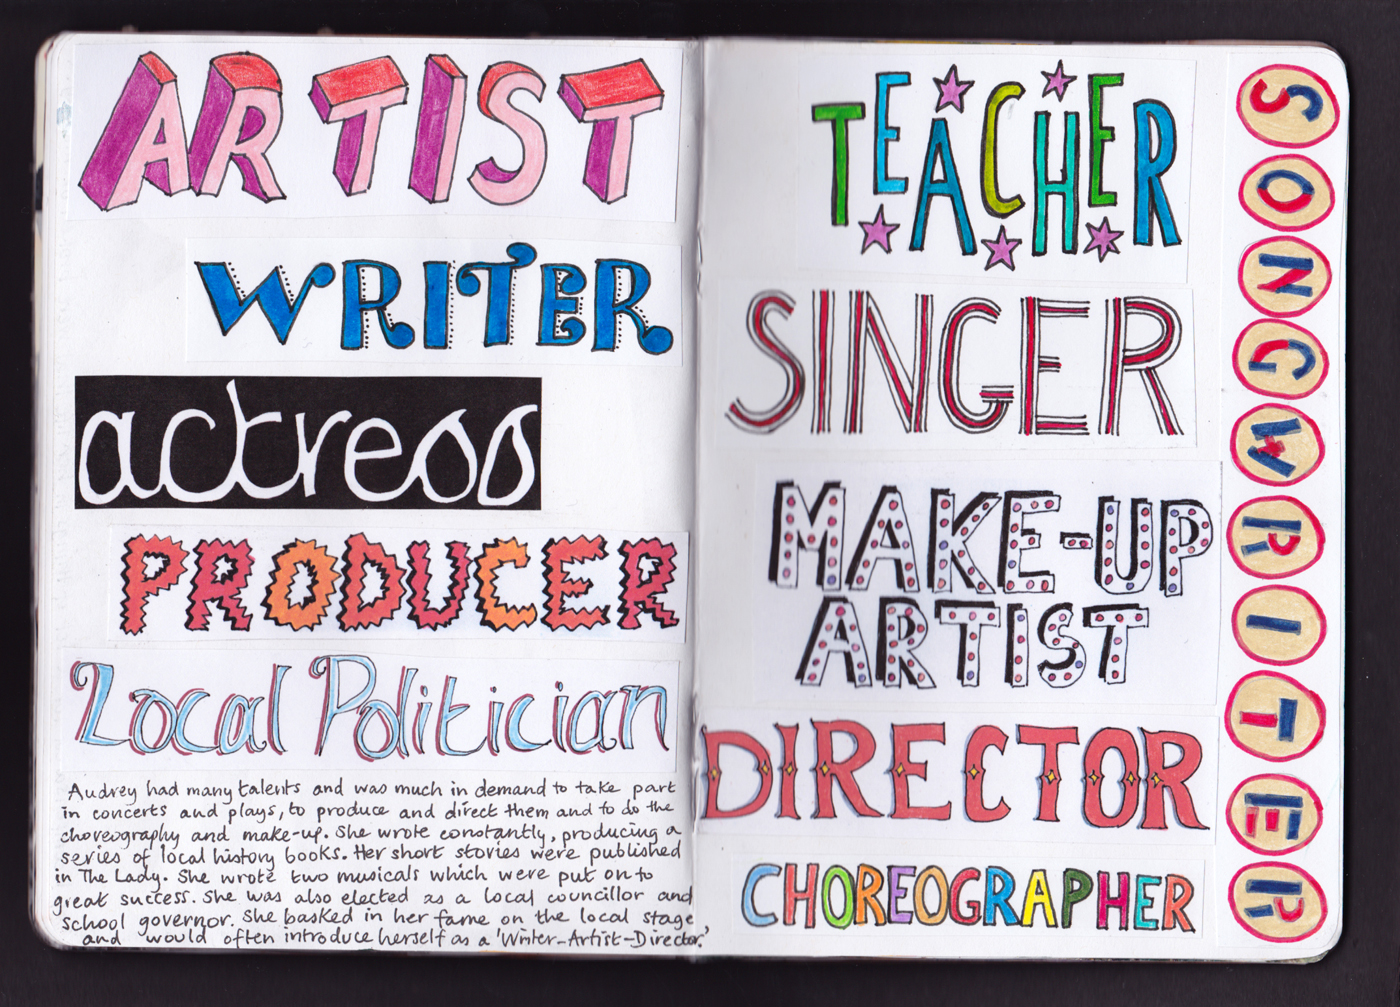 ARTIST
WRITER
actress
PRODUCER
Local Politician
Audrey had many talents and was much in demand to take part
in concerts and plays, to produce and direct them and to do the
choreography and make-up. She wrote constantly, producing a
series of local history books. Her short stories were published
in The Lady. She wrote two musicals which were put on to
great success. She was also elected as a local councillor and
school governor. She basked in her fame on the local stage
and would often introduce herself as a 'Writer-Artist-Director.'
TEACHER
SINGER
MAKE-UP
ARTIST
DIRECTOR
CHOREOGRAPHER
SONGWRITER